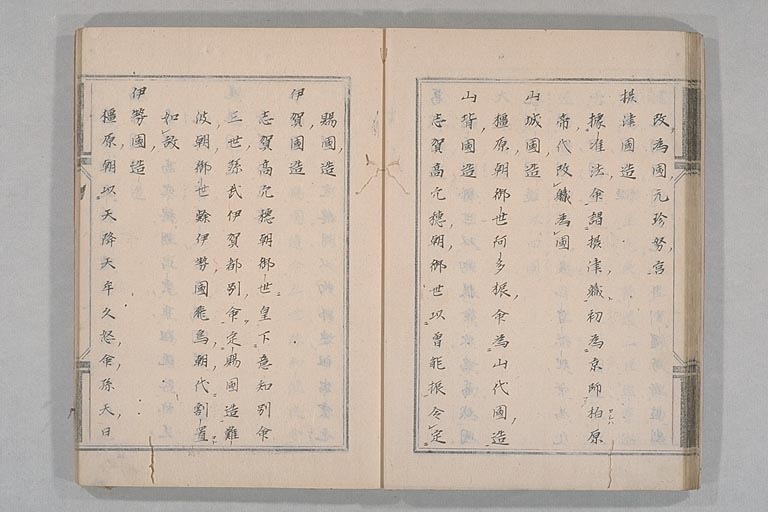 改為國元珍努宮
摂津國造
據准法令謂摂津職初為京師柏原
帝代改職為國
山城國造
橿原朝御世阿多振命為山代國造
山背國造
志賀高穴穂朝御世以曽能振令定
賜國造
伊賀國造
志賀高穴穂朝御世皇下意知別命
三世孫武伊賀都別命定賜國造難
波朝御世餘伊勢國飛鳥朝代割置
如故
伊勢國造
橿原朝以天降天牟久怒命孫天日